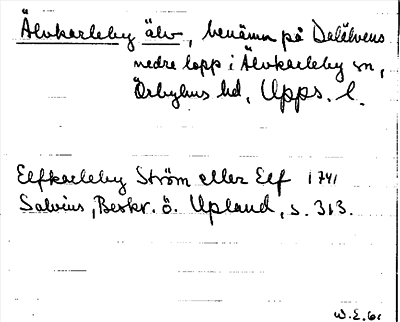 Älvkarleby älv, benämn på Dalälvens
nedre lopp i Älvkarleby sn,
Örbyhus hd, Upps. l.
Elfkarleby Ström eller Elf 1741
Salvius, Beskr. ö. Upland, s. 313.
W.E. 61